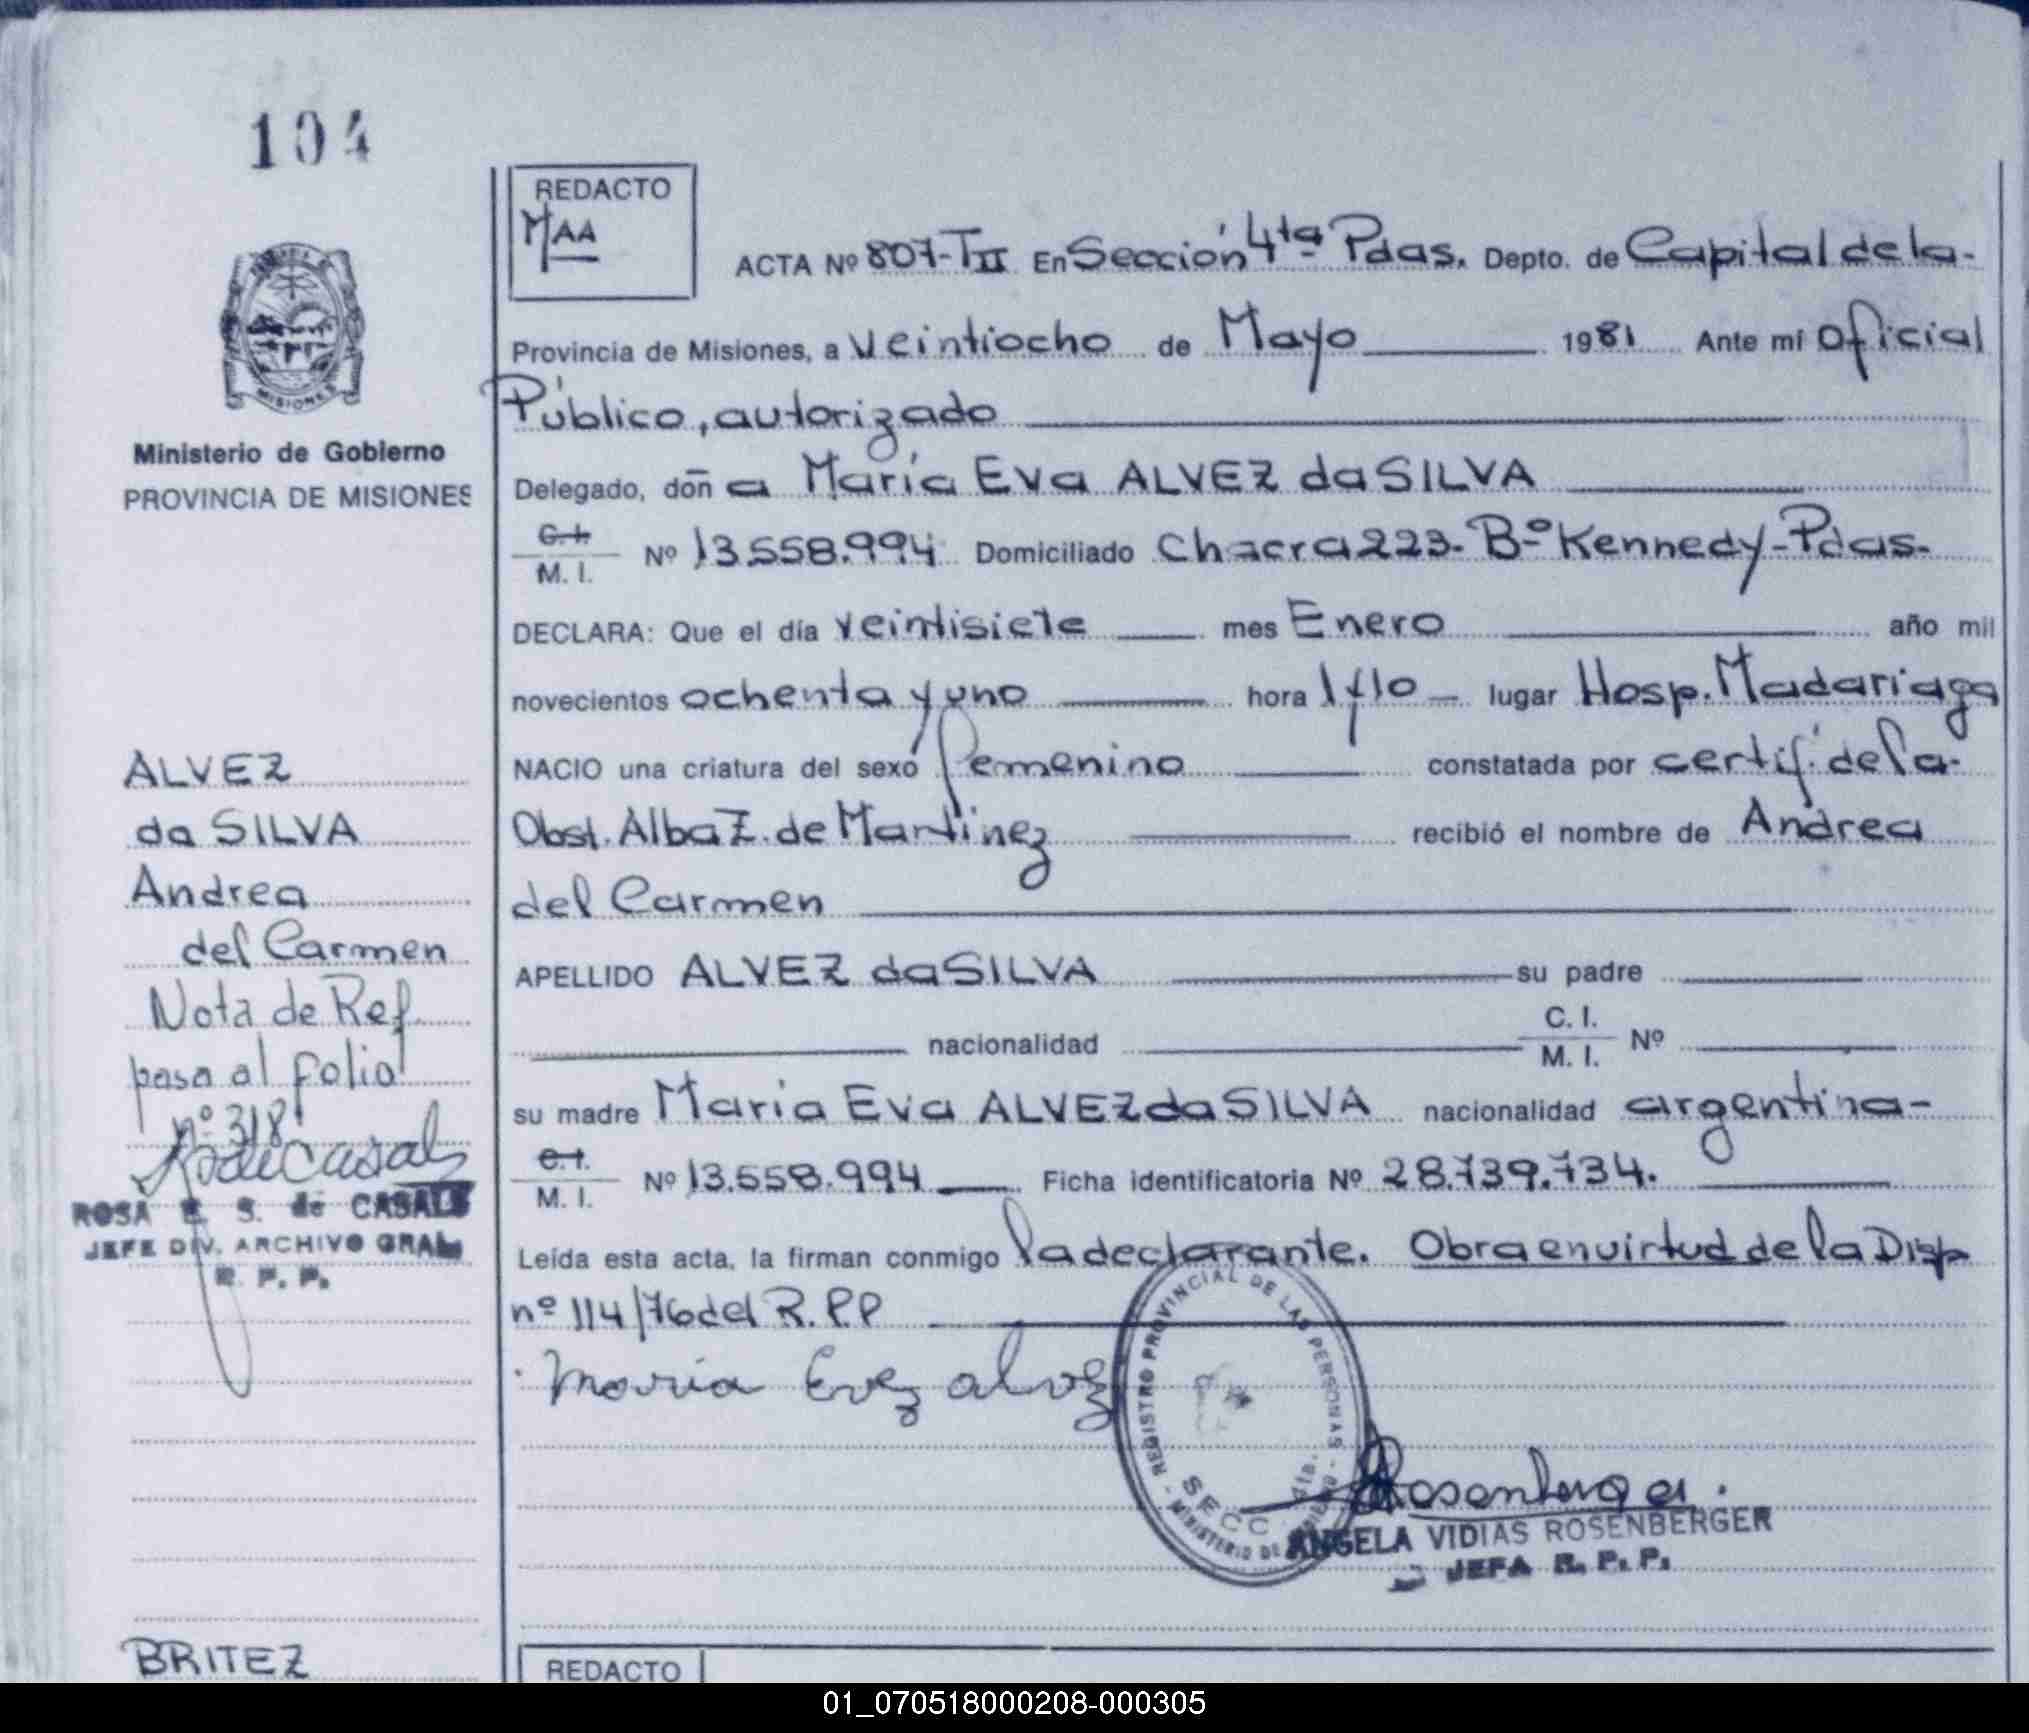 104
MISIONES
Ministerio de Gobierno
PROVINCIA DE MISIONES
REDACTO
MAA
ACTA Nº 807-TII En Sección 4ta Pdas. Depto. de Capital de la-
Provincia de Misiones, a veintiocho de Mayo 1981 Ante mi Oficial
Público, autorizado
Delegado, doña María Eva ALVEZ da SILVA
C.I.
M. I. Nº 13.558.994 Domiciliado Chacra 223-Bº Kennedy-Pdas.
DECLARA: Que el día veintisiete mes Enero año mil
novecientos ochenta y uno hora 1y10 lugar Hosp. Madariaga
NACIO una criatura del sexo femenino constatada por certif. de la-
Obst. Alba Z. de Martinez recibió el nombre de Andrea
del Carmen
APELLIDO ALVEZ da SILVA su padre
nacionalidad C. I.
M. I. Nº
su madre María Eva ALVEZ da SILVA nacionalidad argentina-
C.I.
M. I. Nº 13.558.994 Ficha identificatoria Nº 28.739.734.
Leída esta acta, la firman conmigo la declarante. Obra en virtud de la Disp
nº 114/76 del R.P.P
María Eva alvez
REGISTRO PROVINCIAL DE LAS PERSONAS - MINISTERIO DE
SECC. 4ta.
Rosenberger.
ANGELA VIDIAS ROSENBERGER
JEFA R. P. P.
ALVEZ
da SILVA
Andrea
del Carmen
Nota de Ref.
pasa al folio
nº 318
ROSA E. S. de CASALS
JEFE DIV. ARCHIVO GRAL.
R. P. P.
BRITEZ
REDACTO
01_070518000208-000305